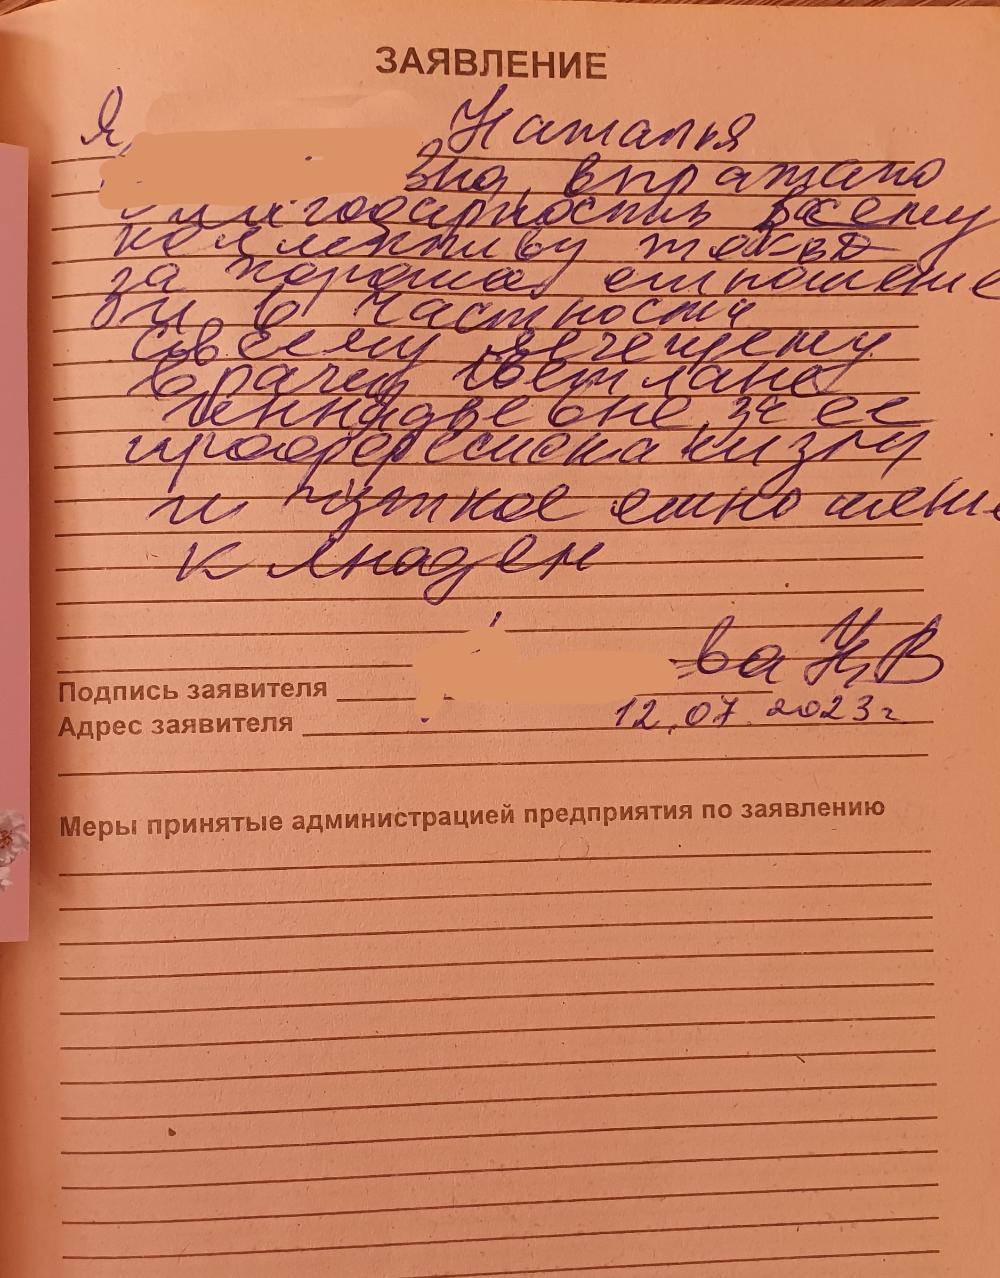 ЗАЯВЛЕНИЕ
Я, Наталья
вна, выражаю
благодарность всему
коллективу
за хорошее отношение
и в частности
своему лечещему
врачу Светлане
Геннадьевне, за ее
профессионализм
и чуткое отношение
к людем
ва Н В
Подпись заявителя
Адрес заявителя 12.07.2023г
Меры принятые администрацией предприятия по заявлению